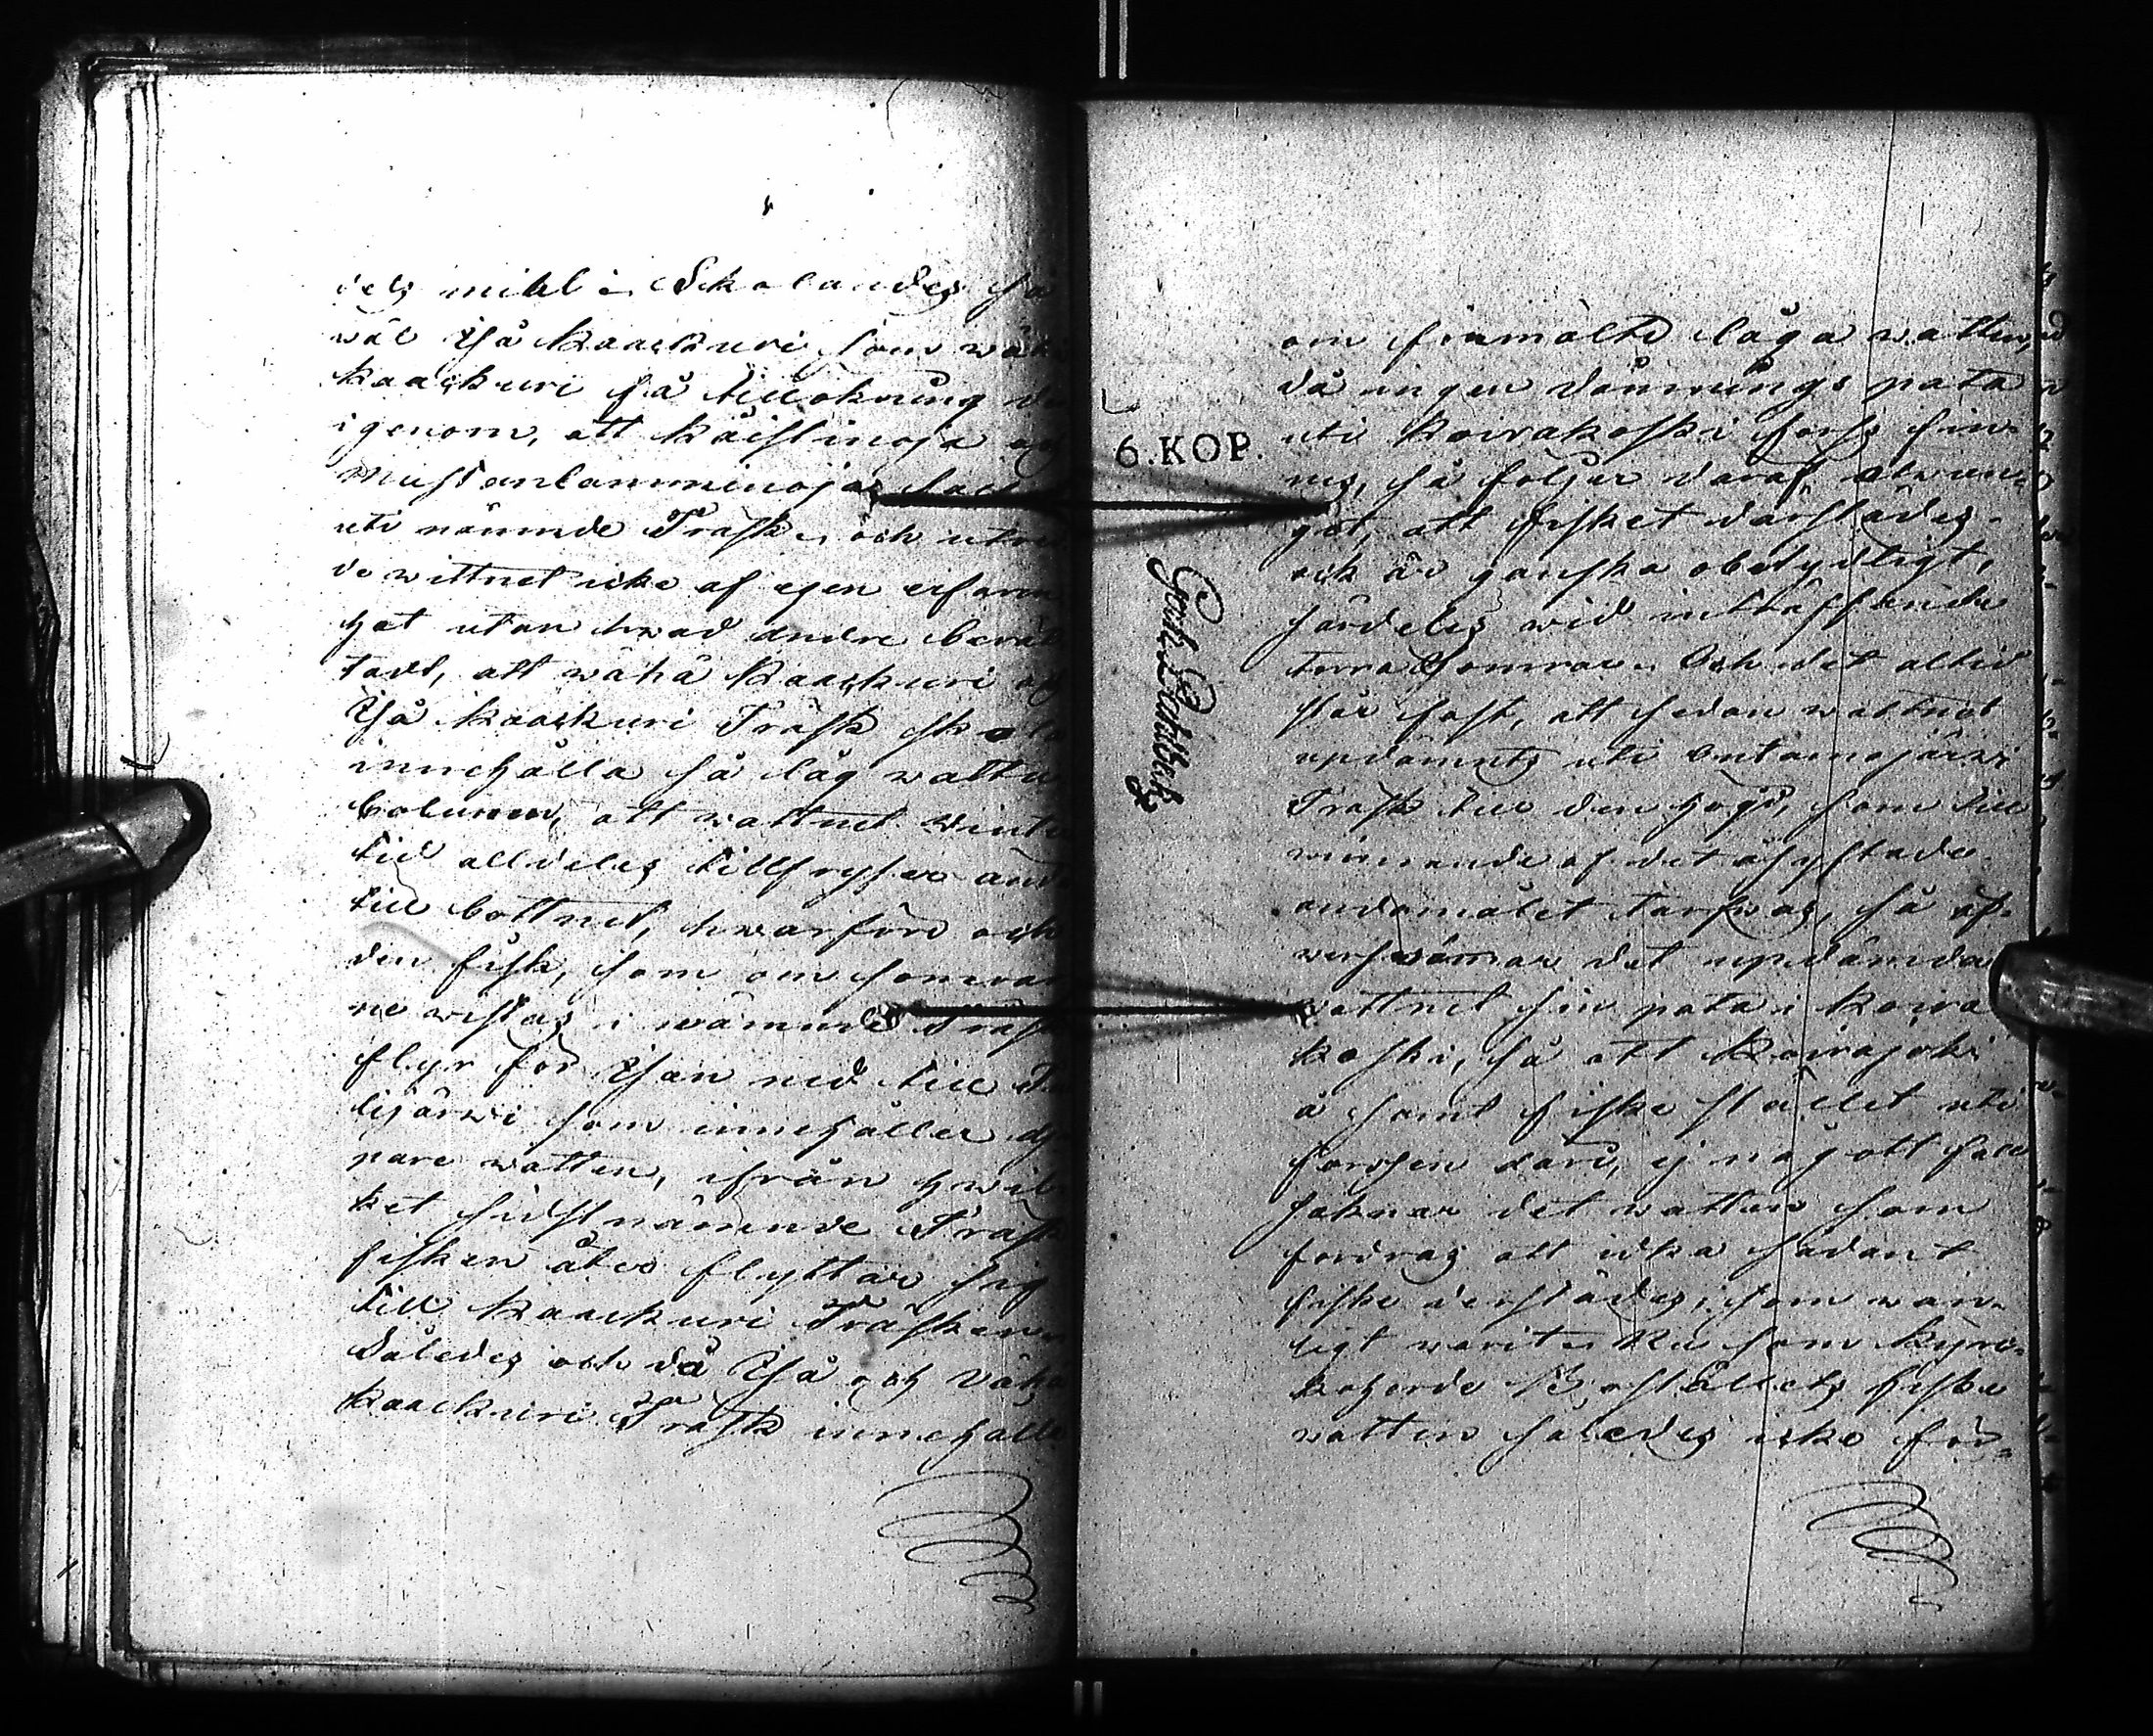 dels mihl: Skolandes så
wäl Iså Kaackuri som wäh
Kaackuri få tillökning
igenom, att Käislinoja och
Mustanlamminoja
uti nämnde Träsk; och
de wittnet icke af egen erfaren
het utan hwad andre berät
tadt, att wähä Kaackuri och
Iså Kaackuri Träsk skola
innehålla så låg watten
volumen, att wattnet winter
tid alldeles tillfryser ända
till bottnet, hwarföre och
den fisk, som om somrar
ne wistas i nämnde Träsk
flyr för Isen ned till
lijärwi som innehåller dju
pare watten, ifrån hwil
ket sidstnämnde Träsk
fisken åter flyttar sig
till Kaackuri Träsken
Således och då Iså och Vähä
Kaackuri Träsk innehålla
6. KOP.
om förmälte låga watten,
då ingen dämnings pata
uti Koirakoski fors fin-
nes, så följer daraf otwun-
get, att fisket därstädes
ock är ganska obetydligt,
särdeles wid inträffande
torra somrar. Och det altid
står fast, att sedan wattnet
updämts uti Ontamojärwi
Träsk till den högd, som till
winnande af det åsyftade
ändamålet tarfwas, så öf-
werswämmar det updämda
wattnet sin pata i Koira
koski, så att Koirajoki
å samt fiske stället uti
forssen därå, ej något fall
saknar det watten som
fordras att idka sådant
fiske derstädes, som wan-
ligt warit. Nu som Kyro-
boställets fiske
watten således icke för-